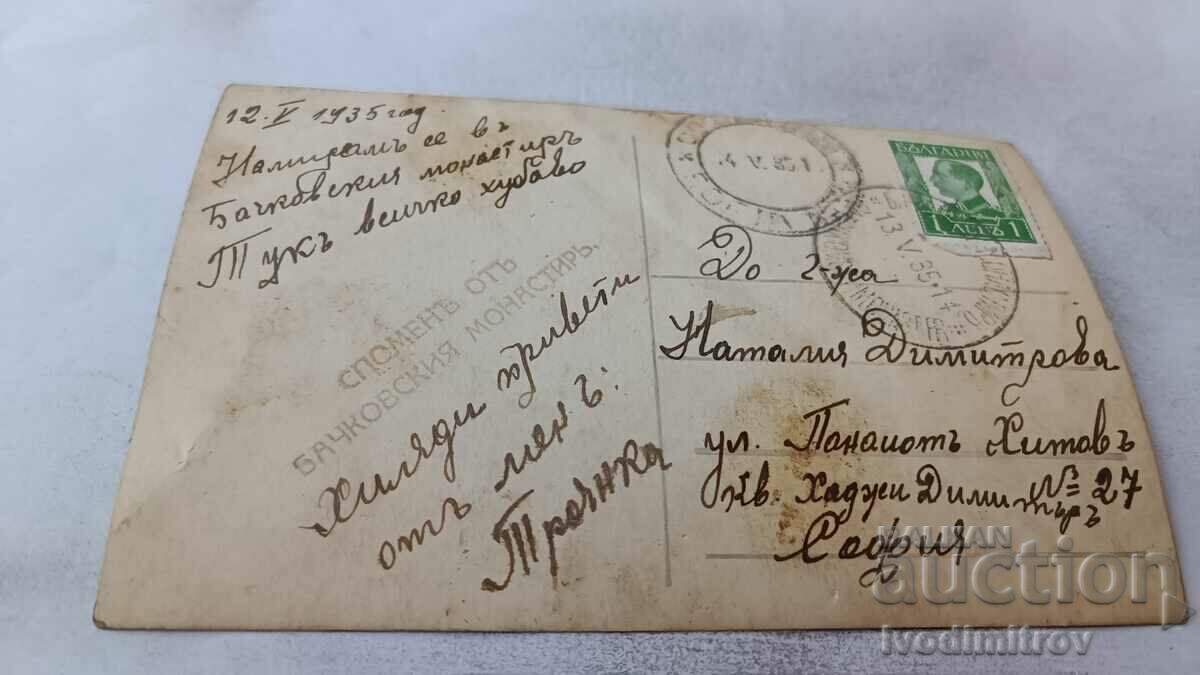 12.V 1935 год.
Намирамъ се въ
Бачковския монастиръ
Тукъ всичко хубаво
СПОМЕНЪ ОТЪ
БАЧКОВСКИЯ МОНАСТИРЪ.
Хиляди привети
отъ менъ:
Троянка
4.V.35.1
БЪЛГАРИЯ
1 ЛЕВЪ 1
13.V.35.1
До г-жа
Наталия Димитрова
ул. Панаиотъ Хитовъ
№ 27
Кв. Хаджи Димитъръ
София
BALKAN
auction
Ivodimitrov